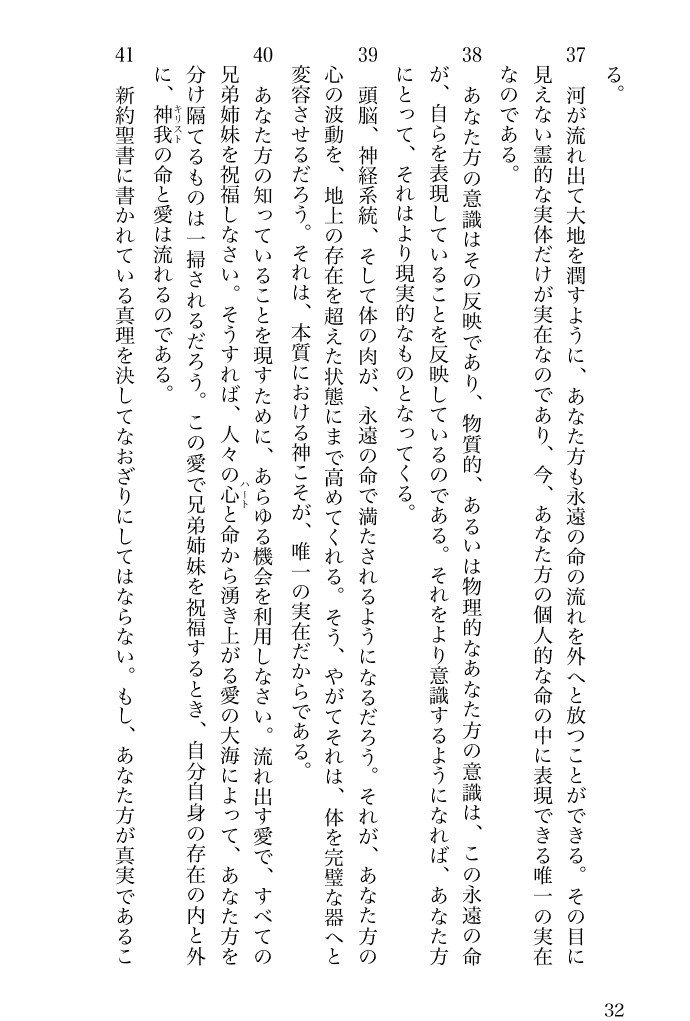 る。
37　河が流れ出て大地を潤すように、あなた方も永遠の命の流れを外へと放つことができる。その目に
見えない霊的な実体だけが実在なのであり、今、あなた方の個人的な命の中に表現できる唯一の実在
なのである。
38　あなた方の意識はその反映であり、物質的、あるいは物理的なあなた方の意識は、この永遠の命
が、自らを表現していることを反映しているのである。それをより意識するようになれば、あなた方
にとって、それはより現実的なものとなってくる。
39　頭脳、神経系統、そして体の肉が、永遠の命で満たされるようになるだろう。それが、あなた方の
心の波動を、地上の存在を超えた状態にまで高めてくれる。そう、やがてそれは、体を完璧な器へと
変容させるだろう。それは、本質における神こそが、唯一の実在だからである。
40　あなた方の知っていることを現すために、あらゆる機会を利用しなさい。流れ出す愛で、すべての
兄弟姉妹を祝福しなさい。そうすれば、人々の心ハートと命から湧き上がる愛の大海によって、あなた方を
分け隔てるものは一掃されるだろう。この愛で兄弟姉妹を祝福するとき、自分自身の存在の内と外
に、神我キリストの命と愛は流れるのである。
41　新約聖書に書かれている真理を決してなおざりにしてはならない。もし、あなた方が真実であるこ
32